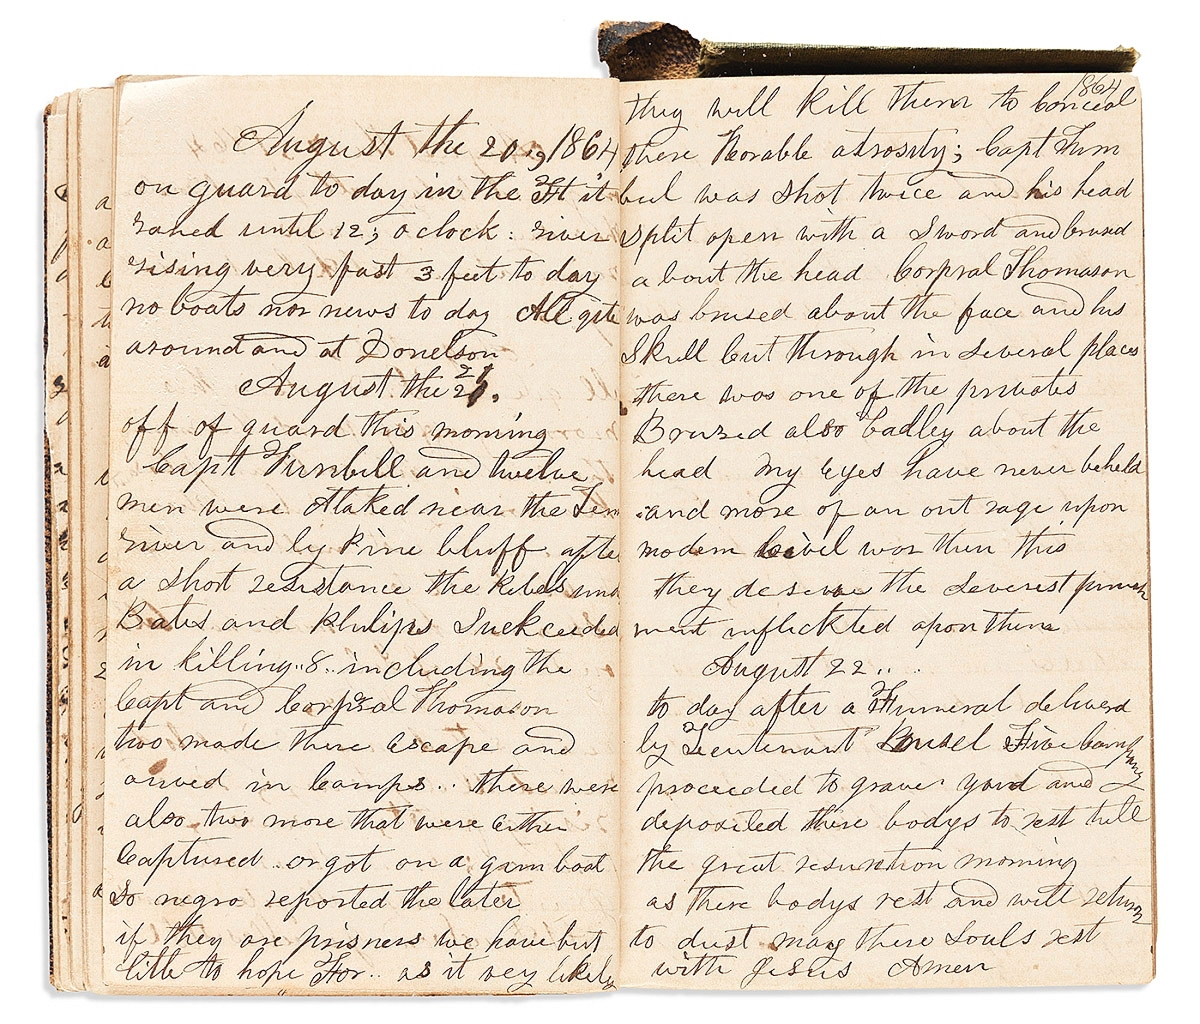 August the 20, 1864
on guard to day in the Ft it
raned until 12; o clock: river
rising very fast 3 feet to day
no boats nor news to day All qite
around and at Donelson
August the 21.
off of guard this morning
Capt Turnbill and twelve
men were Ataked near the Ten
river and by Pine bluff after
a short resistance the Rebels und
Bates and Philips Suckceeded
in killing..8.. including the
Capt and Corpral Thomason
two made there Escape and
arived in Camps.. there were
also two more that were Either
Captured .. or got on a gun boat
So negro reported the later
if they are prisners we have but
little to hope For.. as it very likely
1864
they will kill them to Conceal
there Horable atrosity; Capt Turn
bul was shot twice and his head
split open with a Sword and brused
a bout the head Corpral Thomason
was brused about the face and his
Skull but through in Several places
there was one of the privates
Brused also badley about the
head My Eyes have never beheld
and more of an out rage upon
modern was then this
they deserve the Severest punish
ment inflickted apon them
August 22..
to day after a Funeral deliverd
by Lieutenant Five Company
proceeded to grave yard and
deposited there bodys to rest till
the great resurection morning
as there bodys rest and will return
to dust may there Souls rest
with Jesus Amen